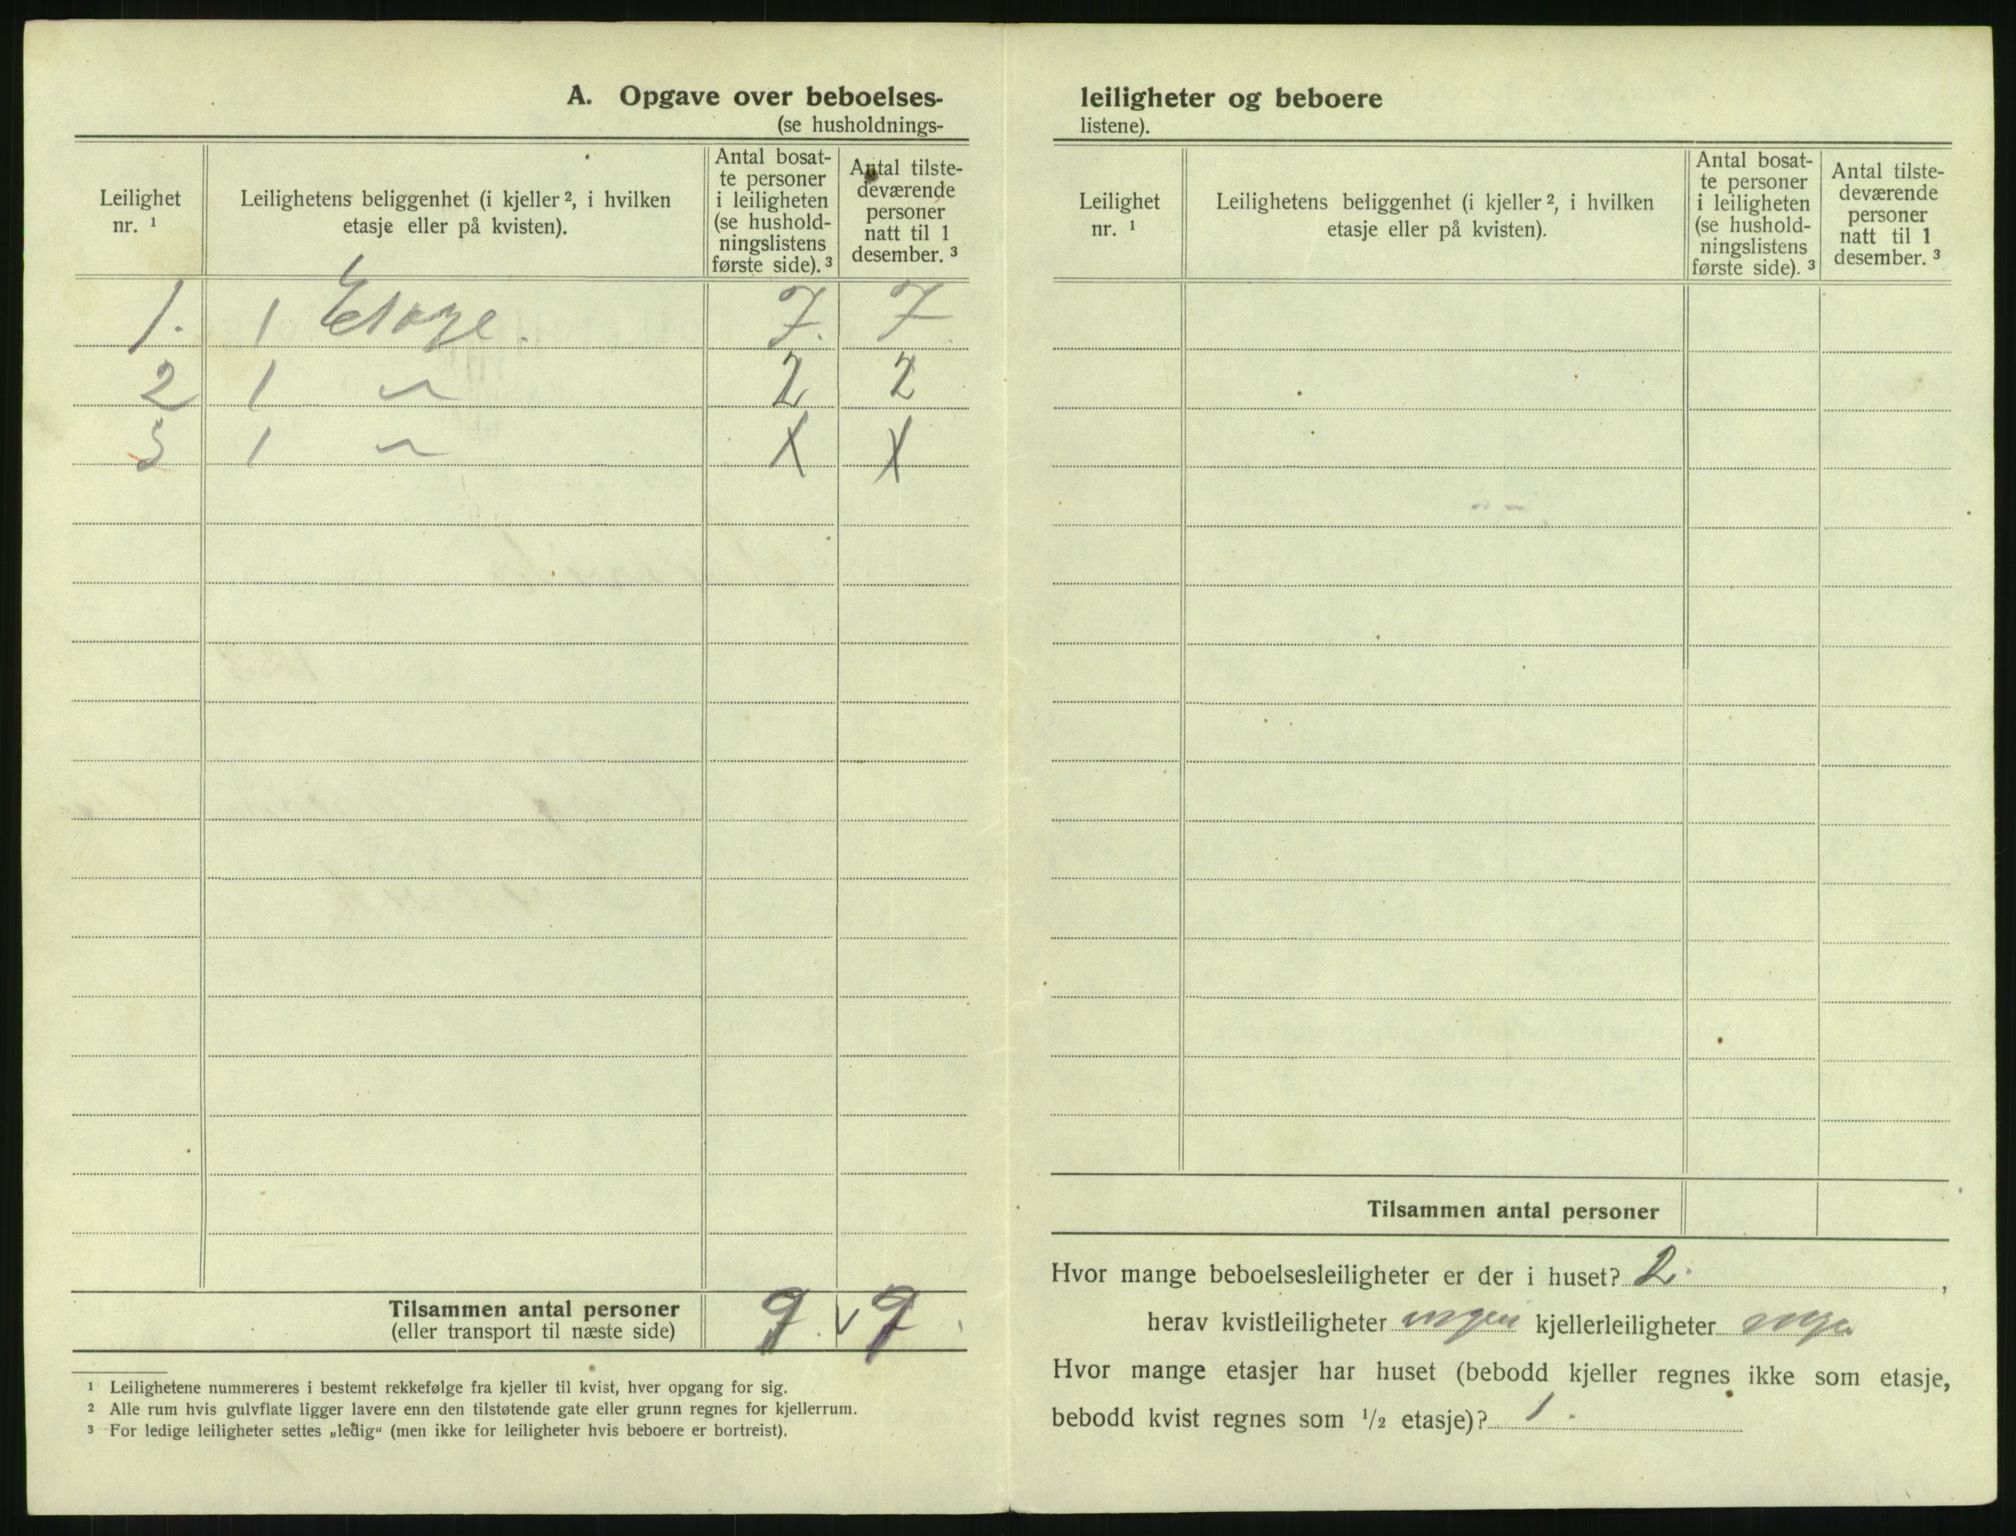 A. Opgave over beboelses-
(se husholdnings-
Leilighet nr. ¹
Leilighetens beliggenhet (i kjeller ², i hvilken etasje eller på kvisten).
Antal bosat-
te personer
i leiligheten
(se hushold-
ningslistens
første side). ³
Antal tilste-
deværende
personer
natt til 1
desember. ³
1. 1 Etage. 7. 7
2 1 〃 2 2
3 1 〃 X X
Tilsammen antal personer
(eller transport til næste side)
9. v 9.
¹ Leilighetene nummereres i bestemt rekkefølge fra kjeller til kvist, hver opgang for sig.
² Alle rum hvis gulvflate ligger lavere enn den tilstøtende gate eller grunn regnes for kjellerrum.
³ For ledige leiligheter settes „ledig“ (men ikke for leiligheter hvis beboere er bortreist).
leiligheter og beboere
listene).
Leilighet nr. ¹
Leilighetens beliggenhet (i kjeller ², i hvilken etasje eller på kvisten).
Antal bosat-
te personer
i leiligheten
(se hushold-
ningslistens
første side). ³
Antal tilste-
deværende
personer
natt til 1
desember. ³
Tilsammen antal personer
Hvor mange beboelsesleiligheter er der i huset? 2. ,
herav kvistleiligheter ingen kjellerleiligheter ingen
Hvor mange etasjer har huset (bebodd kjeller regnes ikke som etasje,
bebodd kvist regnes som ¹/₂ etasje)? 1.